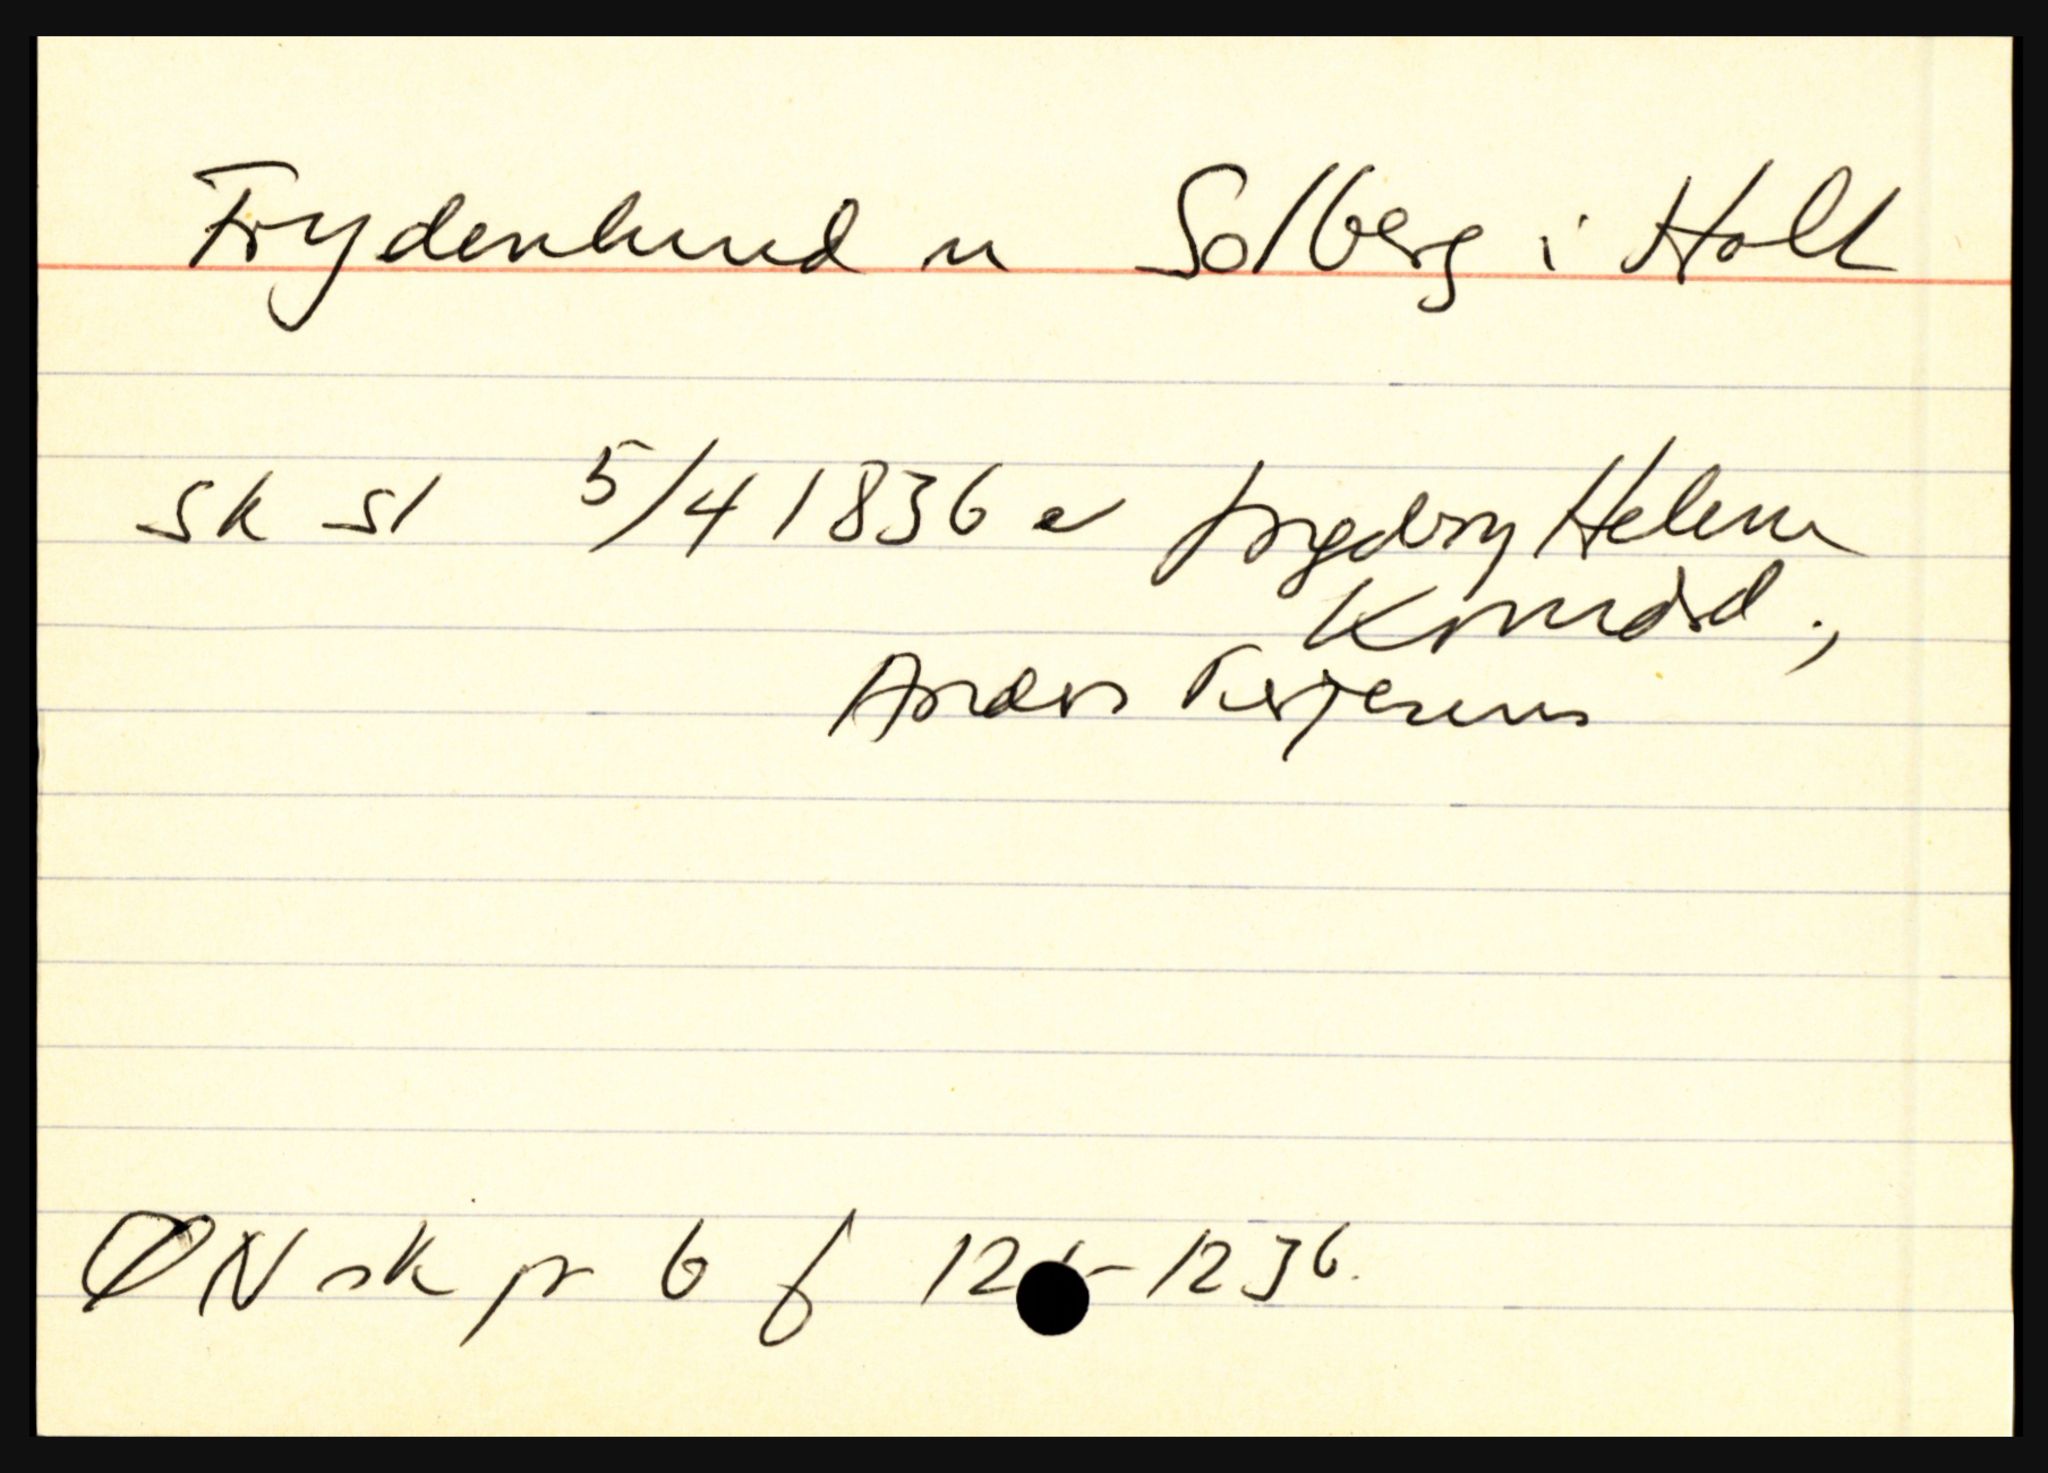 Frydenlund u Solberg i Holt
sk sl 5/4 1836 e Ingebry Helene
Konradsd.,
Anders Terjesens
ØN sk pr 6 f 12 -1236.